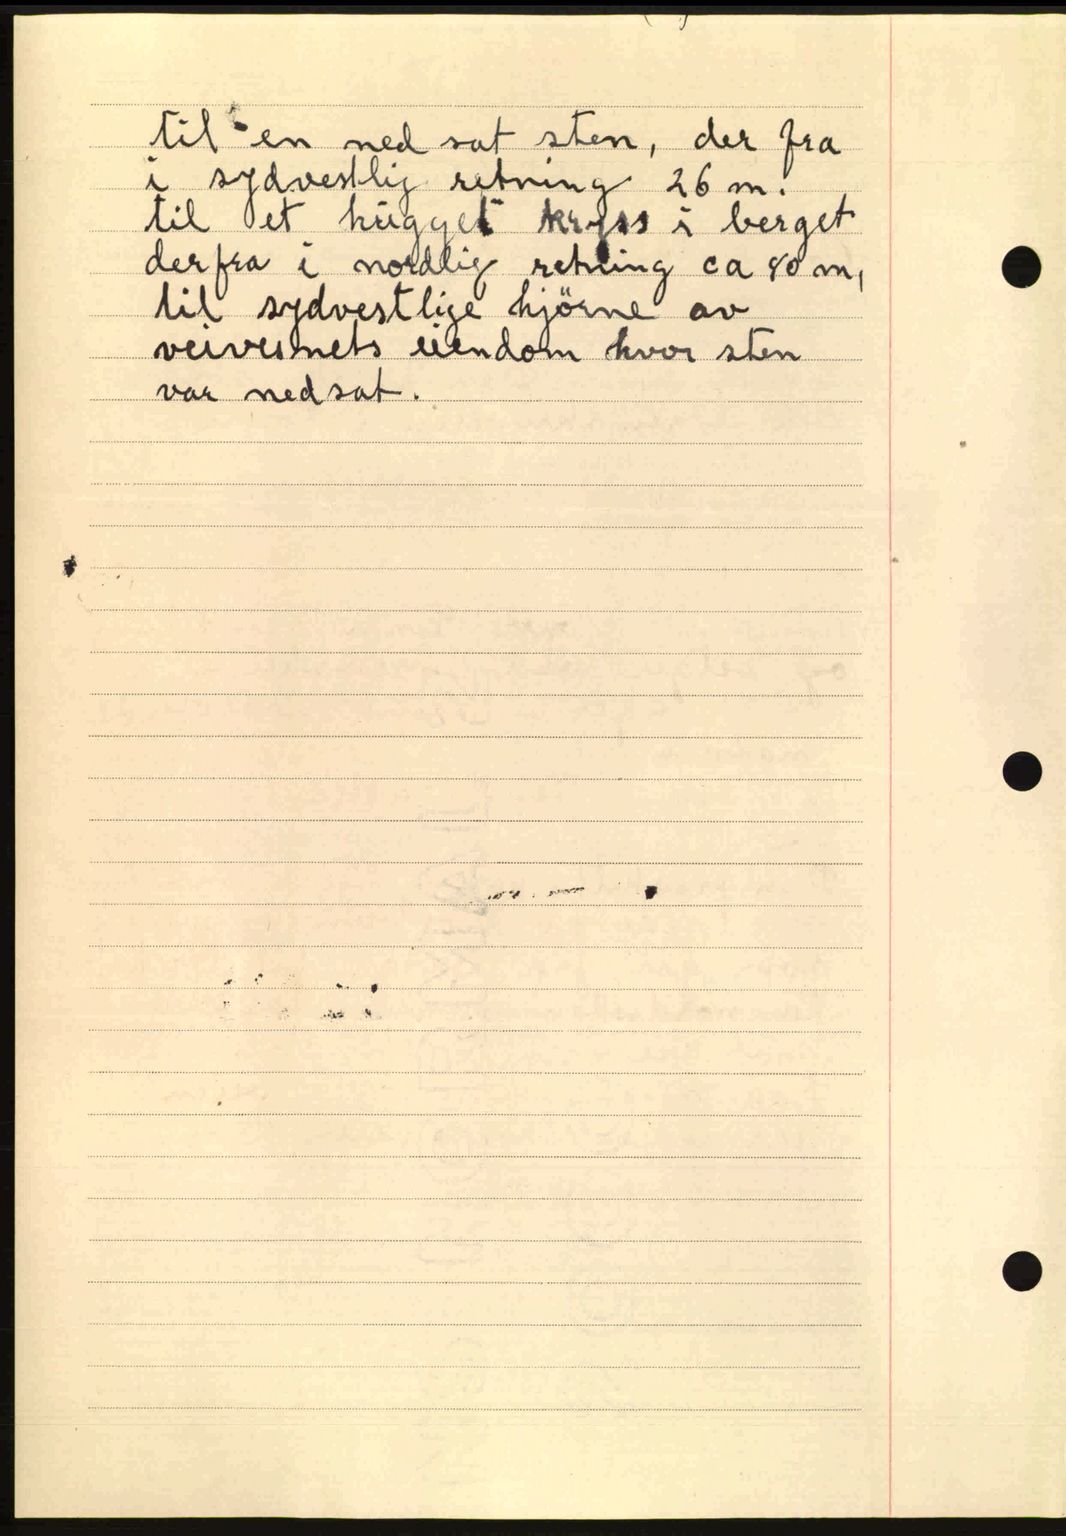 til en ned sat sten, der fra
i sydvestlig retning 26 m.
til et hugget kryss i berget
derfra i nordlig retning ca 80 m,
til sydvestlige hjörne av
veivesnets eiendom hvor sten
var nedsat.